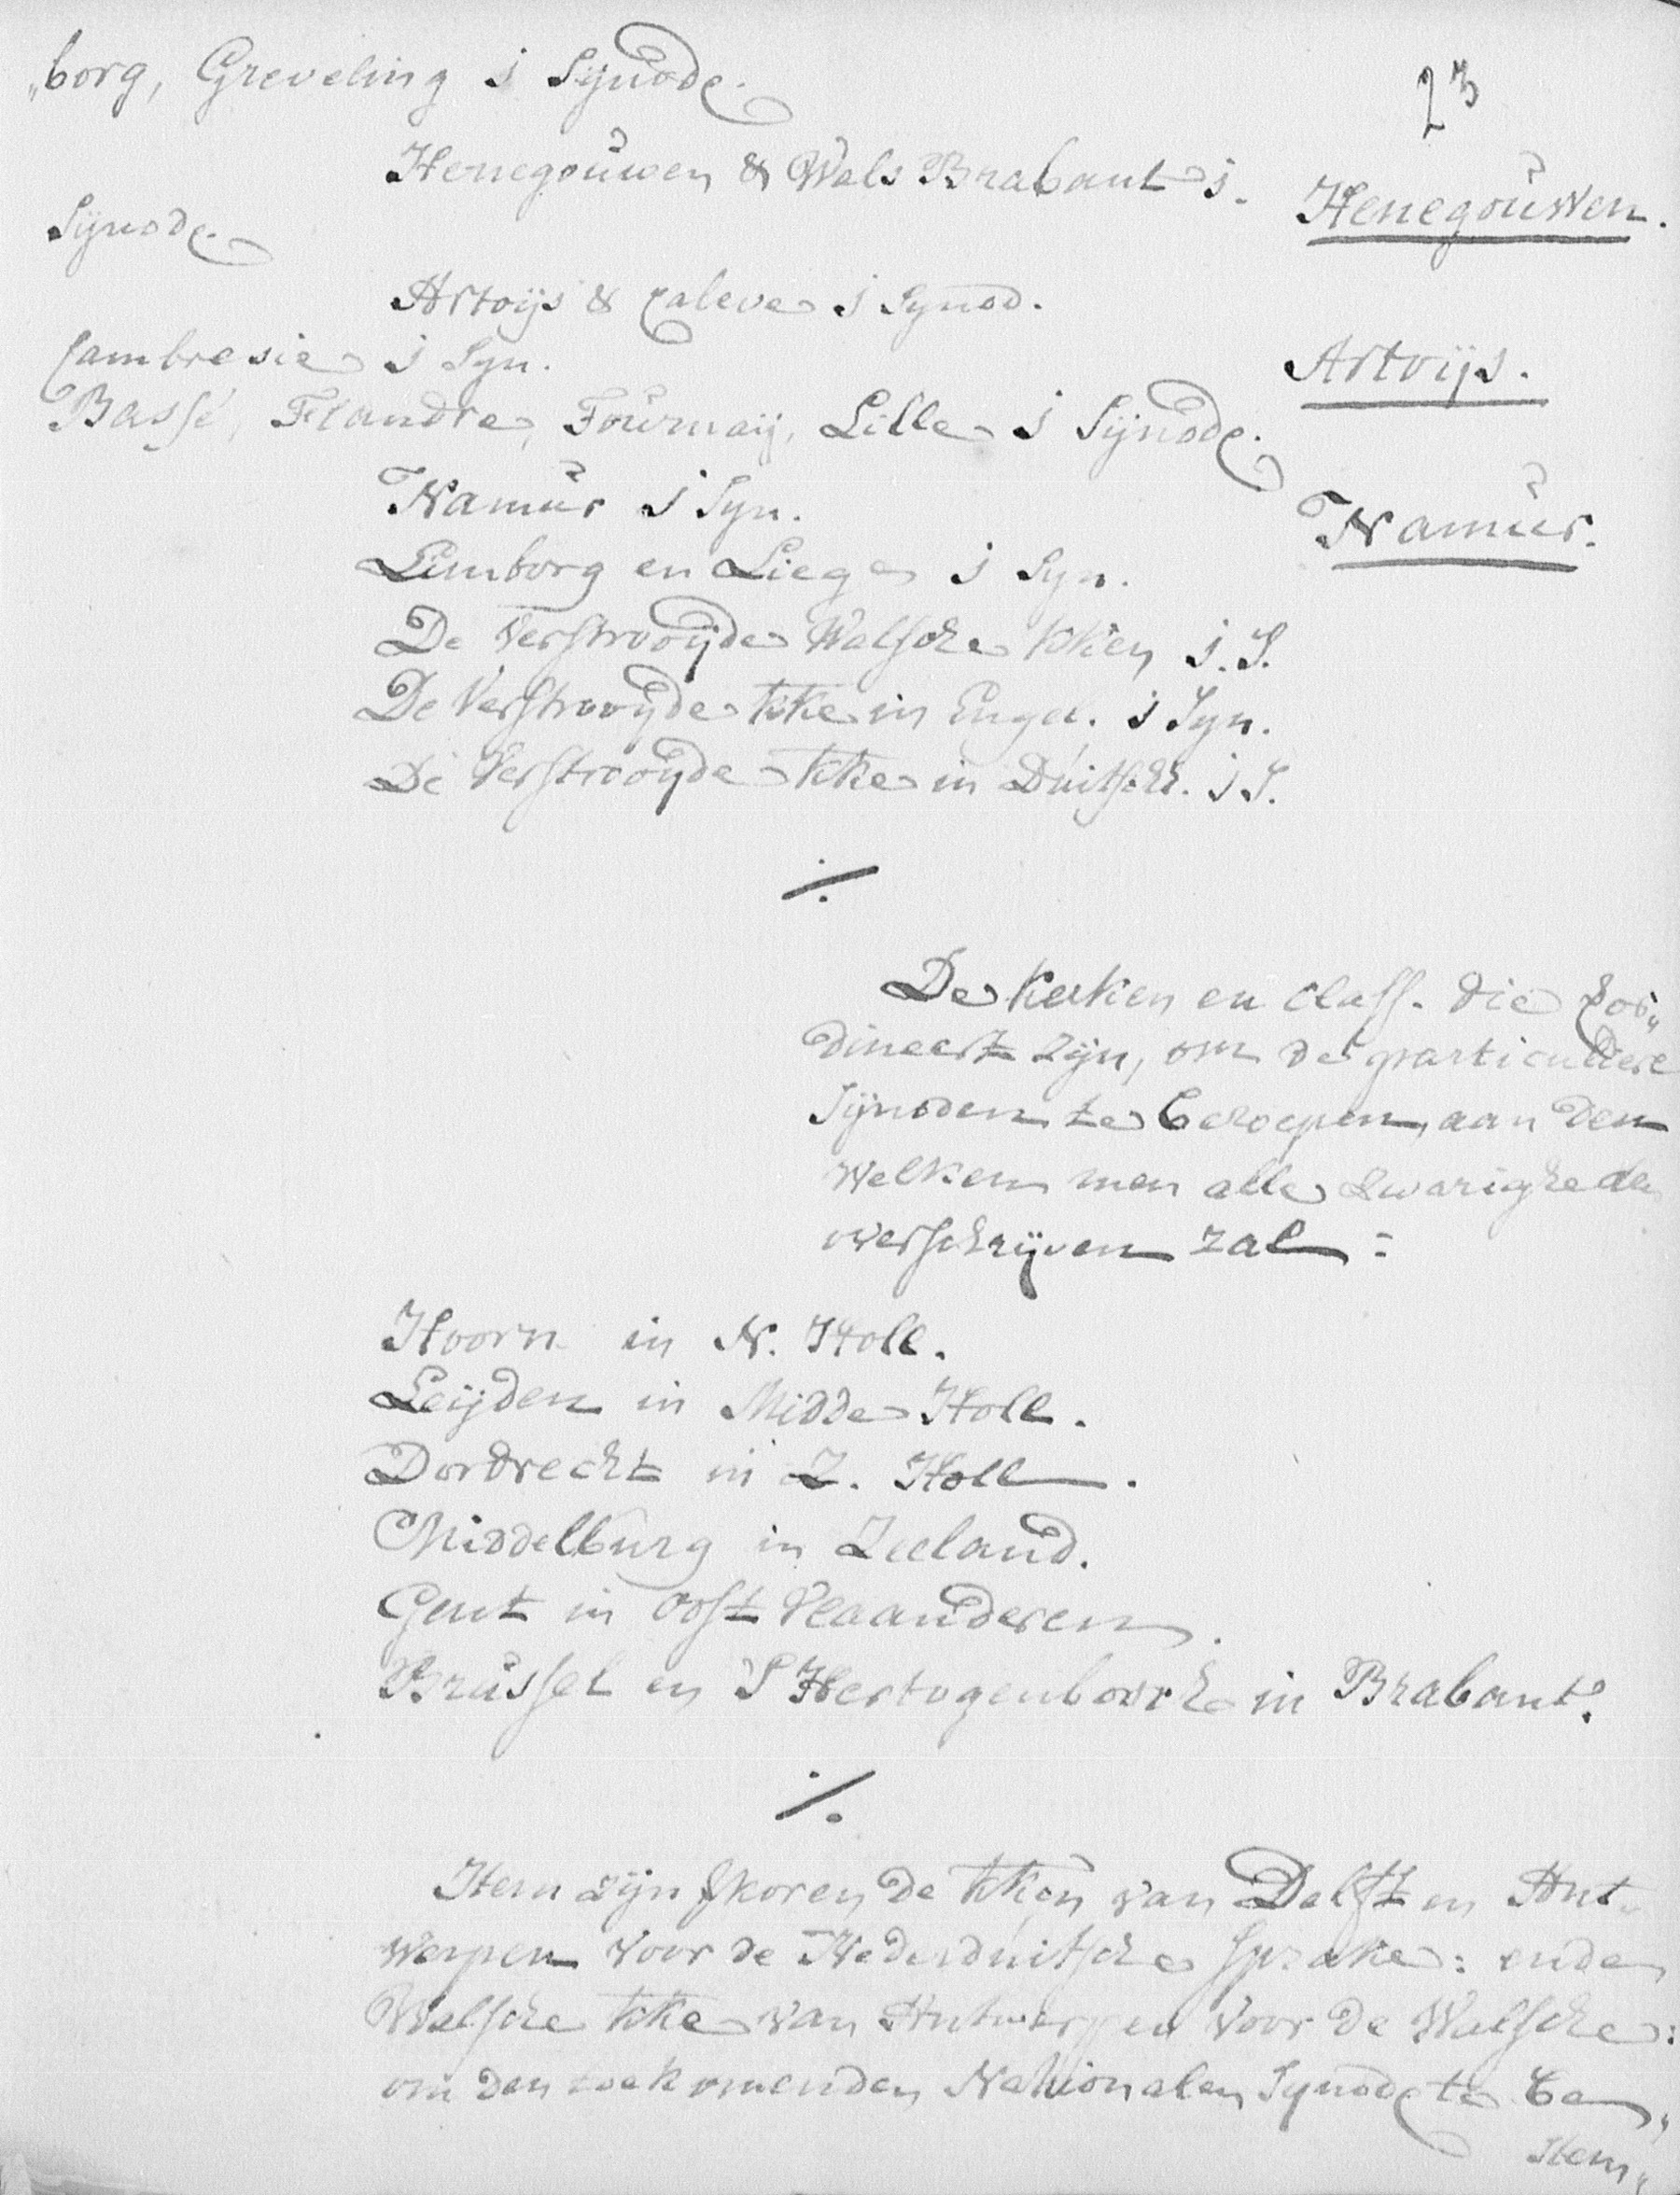 „borg, Greveling j Synode.
23
Henegouwen & Wals Brabant j.
Henegouwen.
Synode.
Artoijs & Caleve j Synod.
Cambresie j Syn.
Artoijs.
Bassé, Flandre, Tournaij, Lille j Synode.
Namur j Syn.
Namur.
Limborg en Liege j Syn.
De Verstrooijde Walsche kken j. S.
De Verstrooijde kke in Engel. j Syn.
De Verstrooijde kke in Duitschl. j S.
De Kerken en Class. die
dineert zijn, om de particuliere
Synoden te beroepen, aan den
Welken men alle Zwarigheden
overschrijven zal:
Hoorn in N. Holl.
Leijden in Midde Holl.
Dordrecht in Z. Holl.
Middelburg in Zeeland.
Gent in Oost Vlaanderen.
Brussel en S Hertogenbosch in Brabant.
Item zijn gkoren de kken van Delft en Ant-
werpen voor de Nederduitsche Sprake: ende
Walsche kke van Antwerpen voor de Walsche:
om den toekomenden Nationalen Synode te be„
Item„